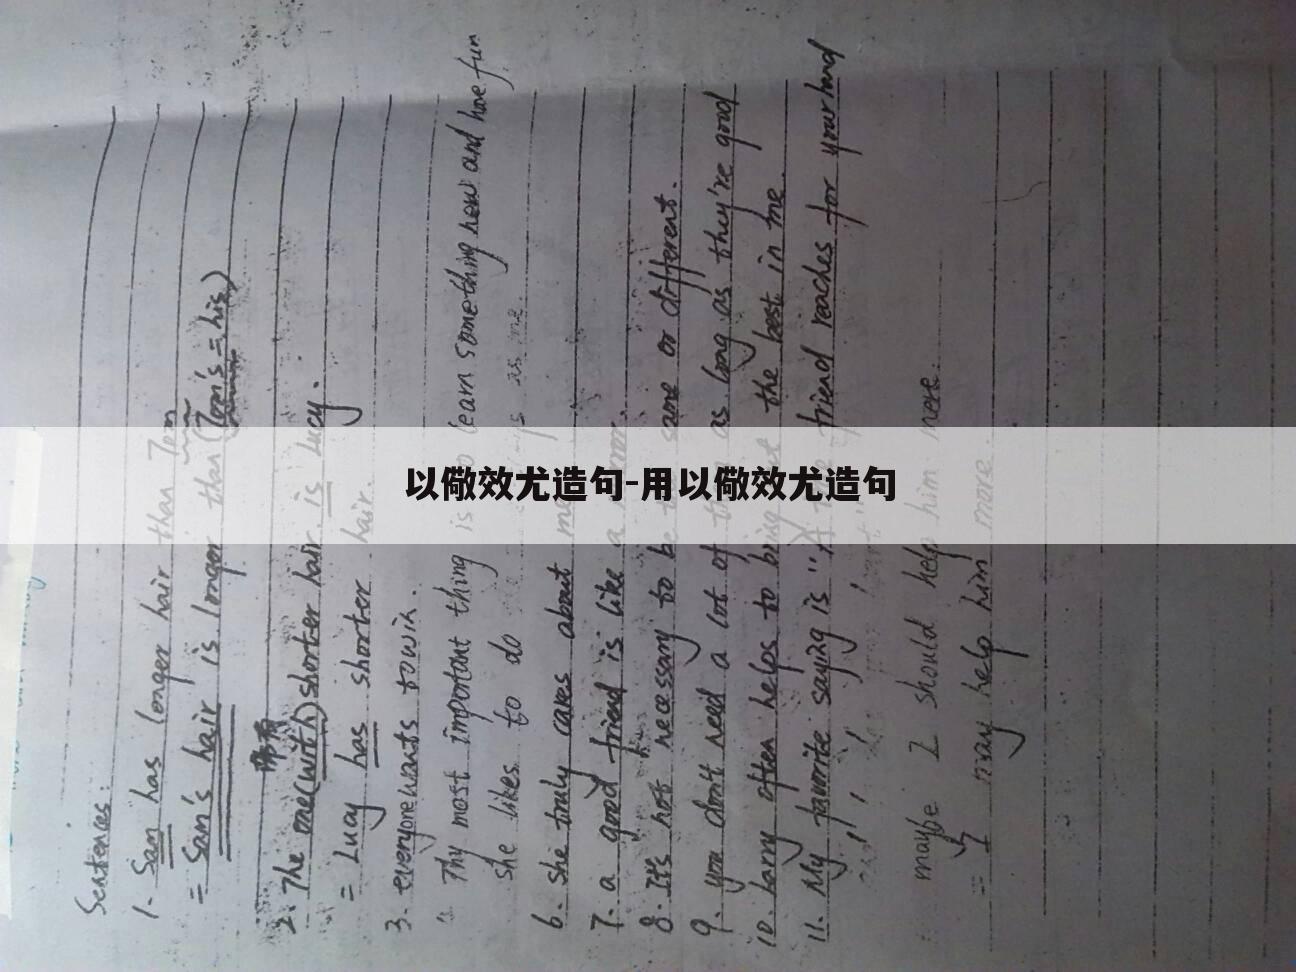 Sentences:
1. Sam has longer hair than Tom
= Sam's hair is longer than (Tom's = his)
带有
2. The one (with) shorter hair is Lucy.
= Lucy has shorter hair.
3. everyone wants to win.
Thy most important thing is learn something new and have fun
she likes to do as me.
6. she truly cares about me
7. a good friend is like a mirror.
8. It's not necessary to be same or different.
9. you don't need a lot of as long as they're good
10. Larry often helps to bring the best in me.
11. My favorite saying is "A friend reaches for your hand
maybe I should help him more.
= I may help him more.
以儆效尤造句-用以儆效尤造句